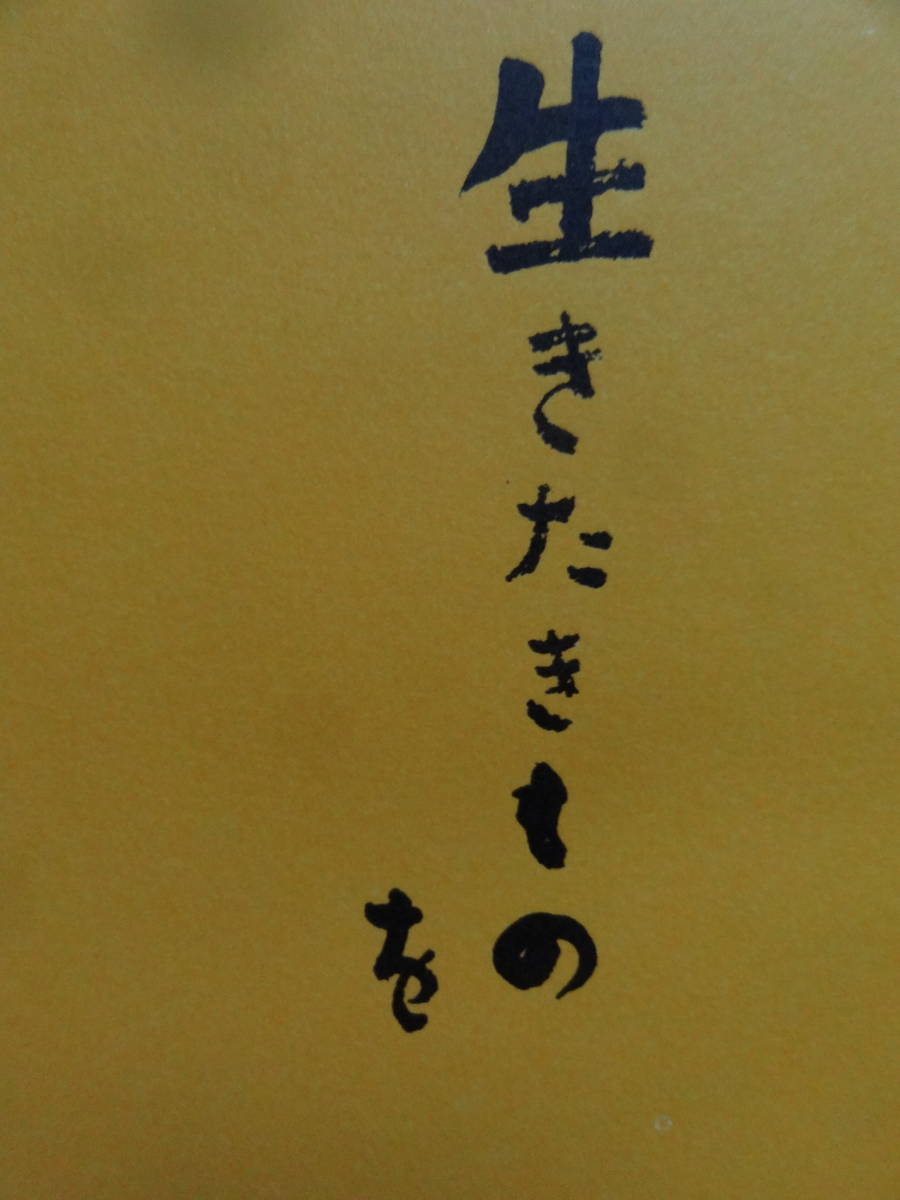 生きたきもの
を